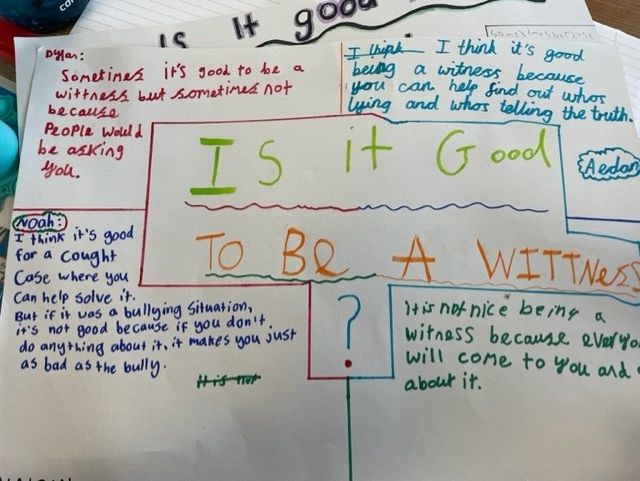 Is It good
sometimes because
Dylan:
Sometines it's good to be a
wittness but sometines not
because
People would
be asking
you.
I think I think it's good
being a witness because
you can help find out whos
lying and whos telling the truth.
Aedan
IS it Good
TO BE A WITTNess
?
Noah:
I think it's good
for a cought
Case where you
Can help solve it.
But if it was a bullying situation,
it's not good because if you don't
do anything about it, it makes you just
as bad as the bully.
It is not
It is not nice being a
witness because everyo
will come to you and
about it.